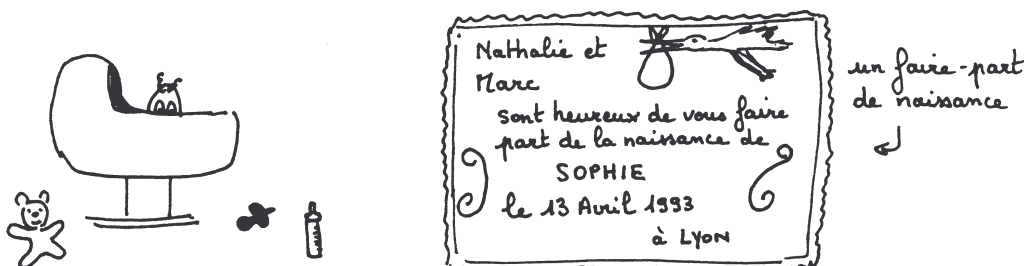 Nathalie et
Marc
sont heureux de vous faire
part de la naissance de
SOPHIE
le 13 Avril 1993
à LYON
un faire-part
de naissance